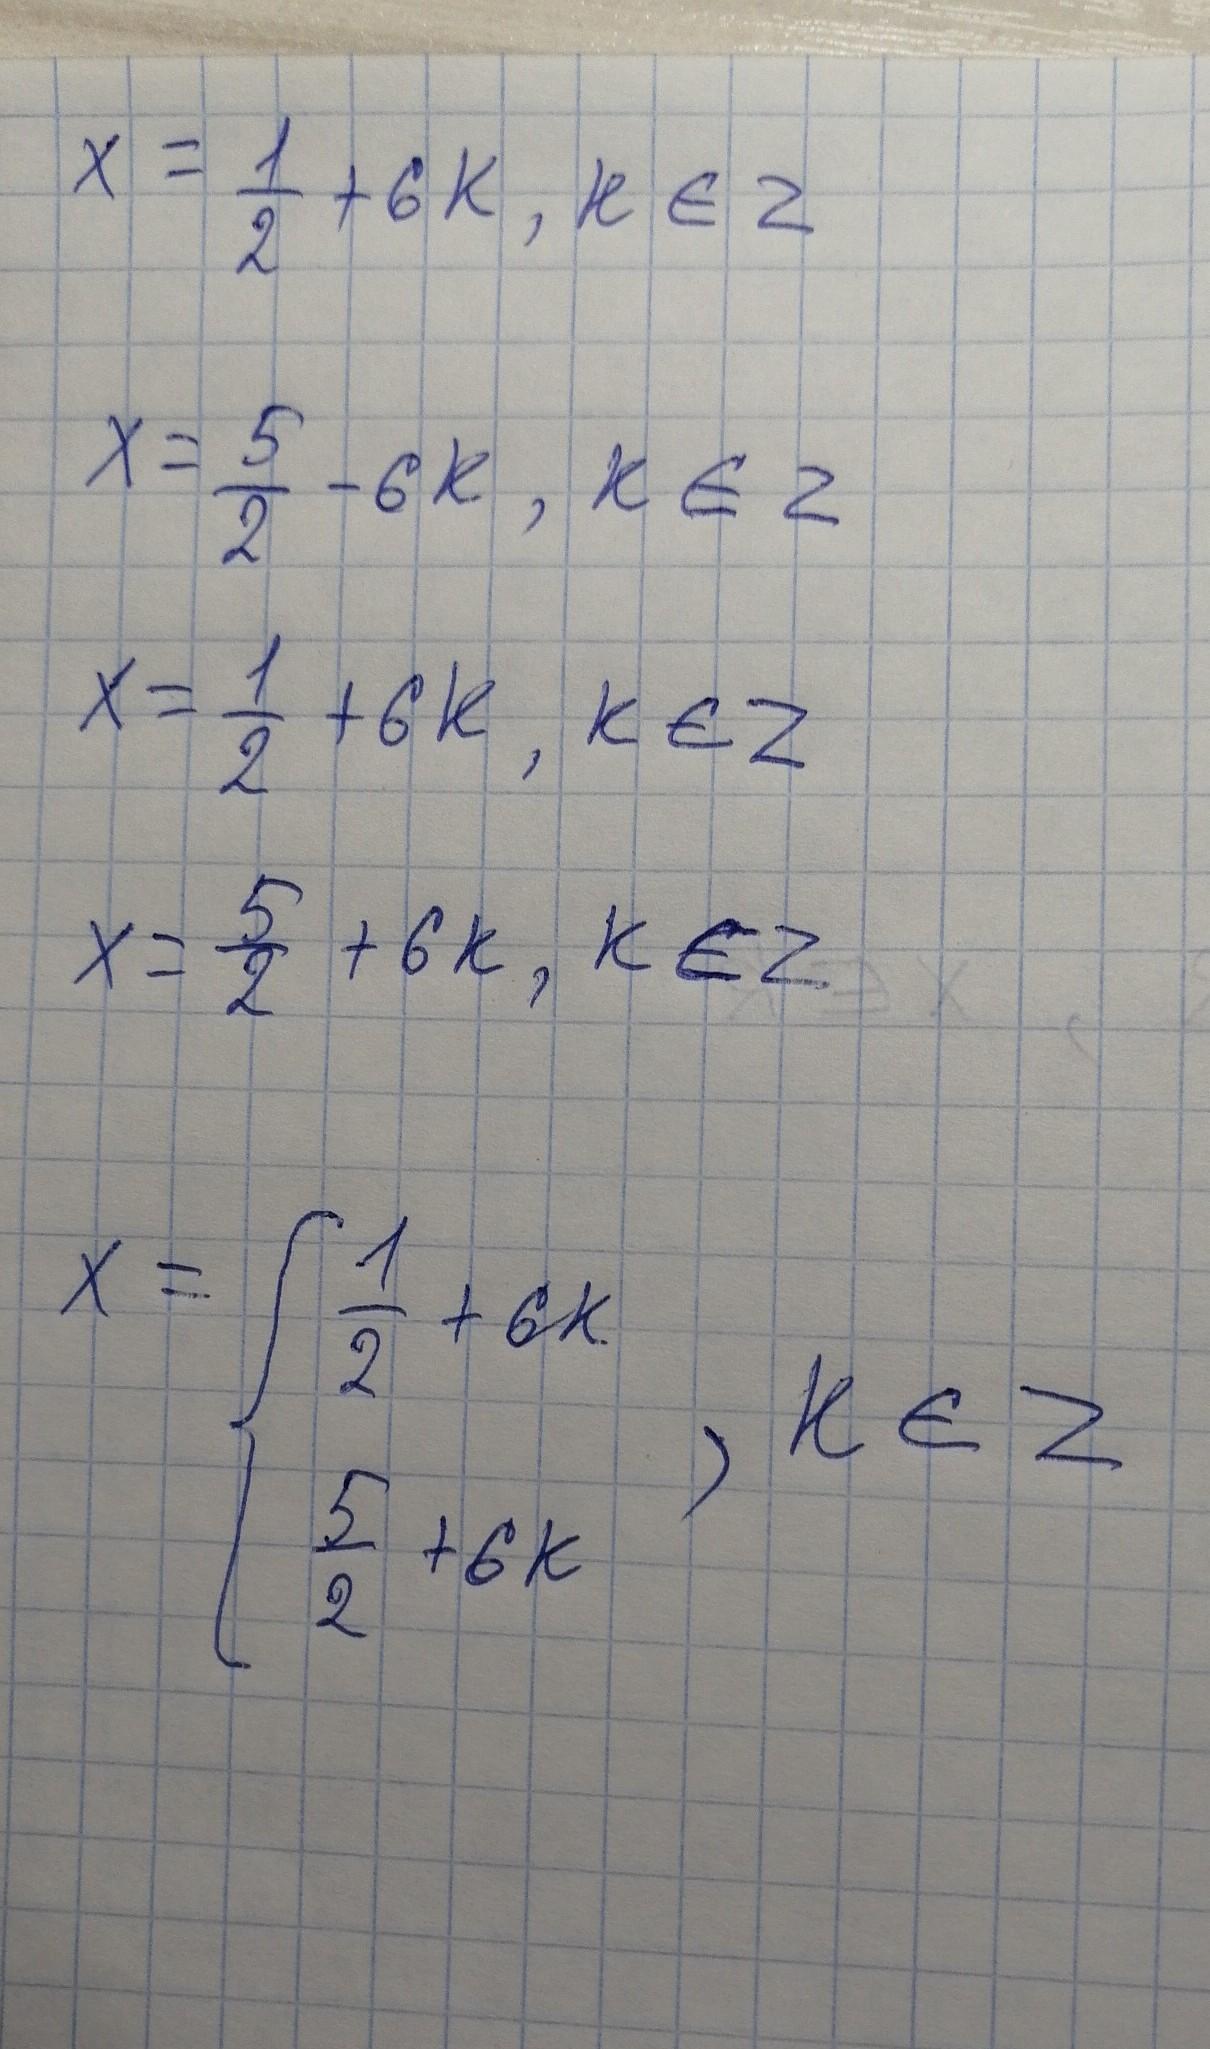 x = 1/2 + 6k, k ∈ Z
x = 5/2 - 6k, k ∈ Z
x = 1/2 + 6k, k ∈ Z
x = 5/2 + 6k, k ∈ Z
x = { 1/2 + 6k
5/2 + 6k , k ∈ Z